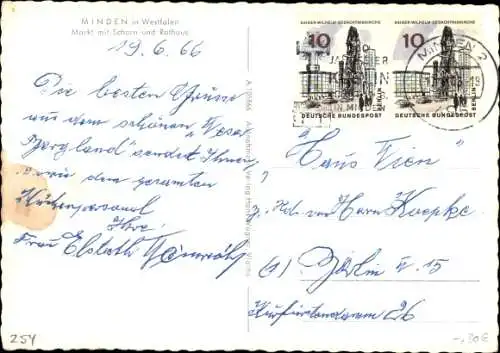 MINDEN in Westfalen
Markt mit Scharn und Rathaus
19.6.66
Die besten Grüsse
aus dem schönen "Weser
Bergland" sendet Ihnen
sowie dem gesamten
Küchenpersonal
Ihre
Frau Elsbeth
KAISER-WILHELM-GEDÄCHTNISKIRCHE
10
DEUTSCHE BUNDESPOST
BERLIN
KAISER-WILHELM-GEDÄCHTNISKIRCHE
10
DEUTSCHE BUNDESPOST
BERLIN
MINDEN 2
IN MINDEN
"Haus Wien"
z. Hd. von Herrn Koepke
(1) Berlin W. 15
Kurfürstendamm 26
254
-,80 €